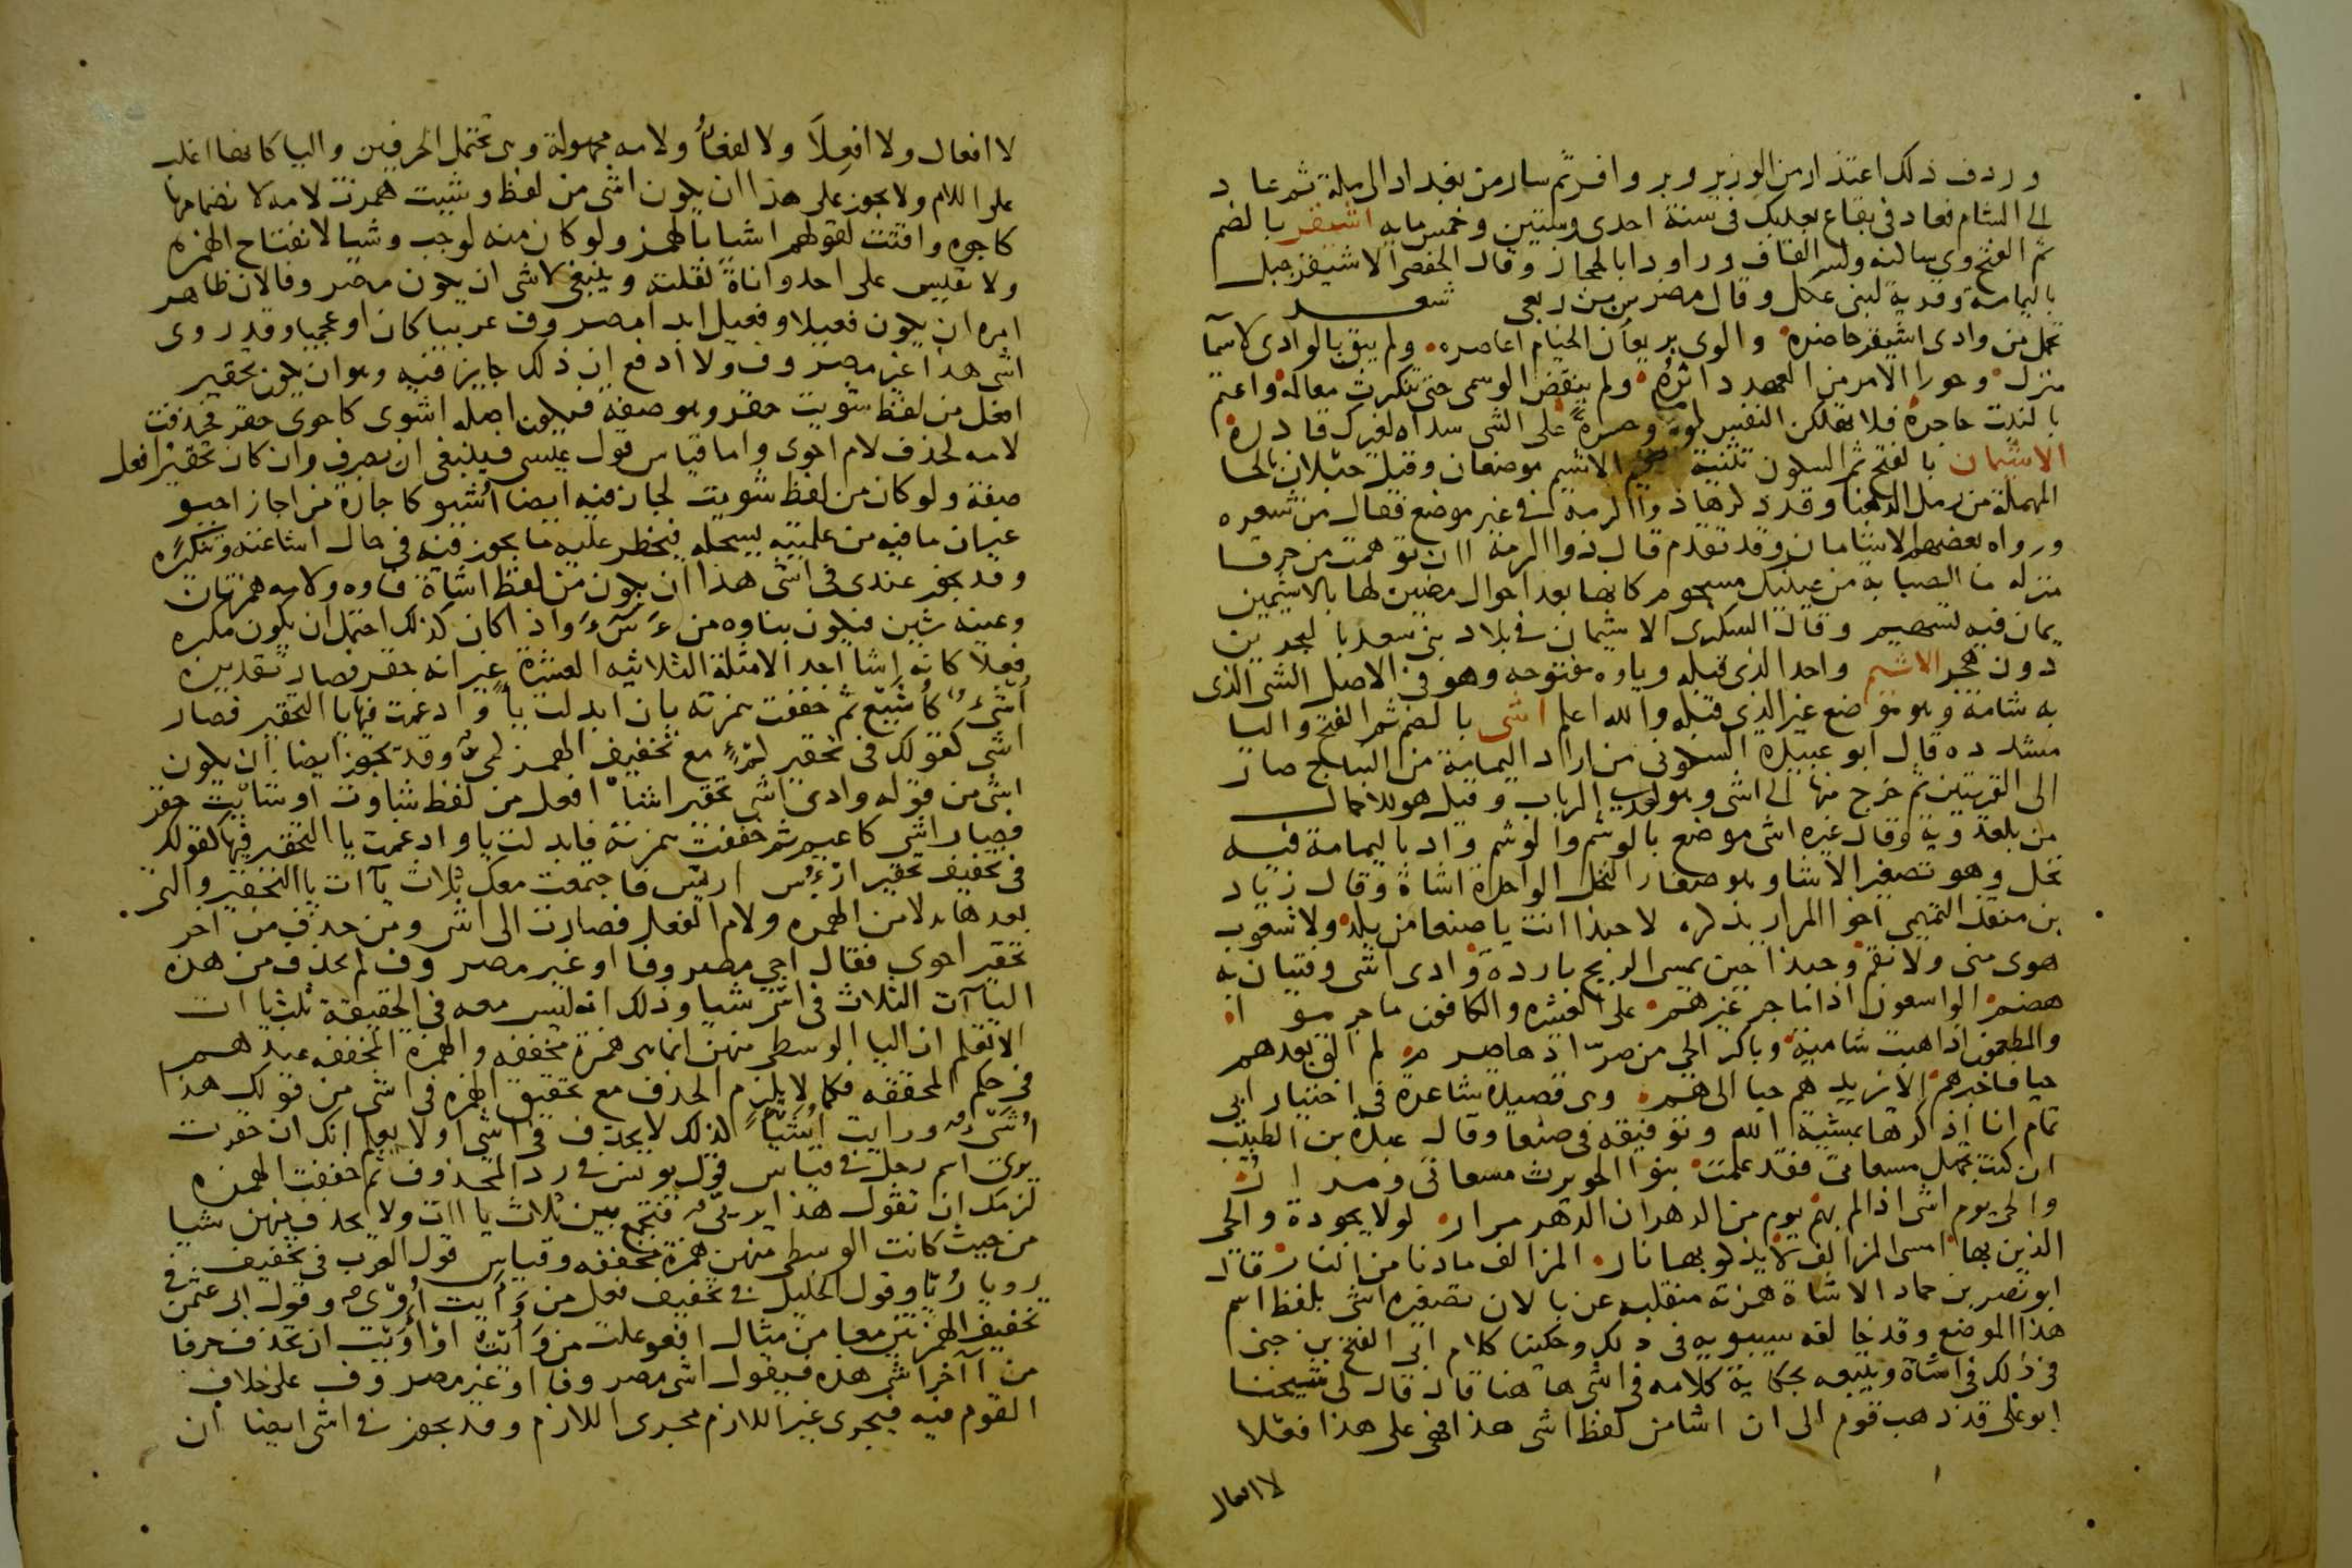 وردف ذلك اعتذار من الوزير وبر وافر ثم سار من بغداد الى مكة ثم عاد
الى الشام فعاد في بقاع بعلبك في سنة احدى وستين وخمس مايه اشيقر بالضم
ثم الفتح وياساكنه وكسر القاف وراواد بالحجاز وقال الحفصى الاشيقر جبل
باليمامة وقرية لبنى عكل وقال مضرس بن ربعى شعر
تحمل من وادى اشيقر حاضره والوى بريعان الخيام اعاصره ولم يبق بالوادى لاسما
منزل وحورا الا مزمن العهد داثره ولم ينقض الوسمى حتى تنكرت معالمه واعتم
بالنبت حاجره فلا تهلكن النفس لوما وحسرة على الشى سداه لغيرك قادره
الاشيمان بالفتح ثم السكون تثنية الاشيم موضعان وقيل حبلان بالحا
المهملة من رمل الدهنا وقد ذكرها ذو الرمة في غير موضع فقال من شعره
ورواه بعضهم الاشامان وقد تقدم قال ذو الرمة اان توهمت من خرقا
منزلة ما الصبابة من عينيك مسجوم كانها بعد احوال مضين لها بالاشيمين
يمان فيه تسهيم وقال السكرى الاشيمان في بلاد بنى سعد بالبحرين
دون هجر الاشيم واحد الذى قبله وياوه مفتوحه وهو في الاصل الشى الذى
به شامة وهو موضع غير الذى قبله والله اعلم اشى بالضم ثم الفتح واليا
مشدده قال ابو عبيدة السكونى من اراد اليمامة من النباج صار
الى القريتين ثم خرج منها الى اشى وهو لعدى الرباب وقيل هو للاحمال
من بلعدوية وقال غيره اشى موضع بالوشم والوشم واد باليمامة فيه
نخل وهو تصغير الاشا وهو صغار النخل الواحدة اشاة وقال زياد
بن منقذ التميمى اخو المرار يذكره لا حبذا انت يا صنعا من بلد ولا شعوب
هوى منى ولا نقم وحبذا حين تمسى الريح باردة وادى اشى وفتيان به
هضم الواسعون اذا ما جر غيرهم على العشيره والكافون ما جرموا
والمطعمون اذا هبت شامية وباكر الحى من صرادها صرم لم الق بعدهم
حيا فاخبرهم الا يزيدهم حبا الى هم وهى قصيدة شاعرة في اختيار ابى
تمام انا اذكرها بمشية الله وتوفيقه في صنعا وقال عبدة بن الطيب
ان كنت تجهل مسعاتى فقد علمت بنو الحويرث مسعاتى
والحى يوم اشى اذ الم بهم يوم من الدهر ان الدهر مرار لولا يجودة والحى
الذين بها امسى المزالف لا يذكو بها نار المزالف ما دنا من النار قال
ابو نصر بن حماد الاشاة همزته منقلبه عن يا لان تصغيره اشى بلفظ اسم
هذا الموضع وقد خالفه سيبويه في ذلك وحكينا كلام ابى الفتح بن جنى
في ذلك في اشاة ونتبعه بحكاية كلامه في اشى هاهنا قال قال لى شيخنا
ابو على قد ذهب قوم الى ان اشا من لفظ اشى هذا فهى على هذا فعلا
لا افعال
لا افعال ولا افعلا ولا لفعا ولامه مجهولة وهى تحتمل الحرفين واليا كانها اغلب
على اللام ولا يجوز على هذا ان يكون اشى من لفظ وشيت همزت لامه لانضمامها
كاجوه واقتت لقولهم اشيا بالهمز ولو كان منه لوجب وشيا لانفتاح الهمزه
ولا تقيس على احد واناة لقلته وينبغى لاشى ان يكون مصروفا لان ظاهر
امره ان يكون فعيلا وفعيل ابدا مصروف عربيا كان او عجميا وقد روى
اشى هذا غير مصروف ولا ادفع ان ذلك جايز فيه وهو ان يكون تحقير
افعل من لفظ شويت حقر وهو صفة فيكون اصله اشوى كاحوى حقر فحذفت
لامه كحذف لام احوى واما قياس قول عيسى فينبغى ان يصرف وان كان تحقير افعل
صفة ولو كان من لفظ شويت لجاز فيه ايضا اشيو كما جاز من اجاز احيو
غير ان ما فيه من علميته يسجله فيحظر عليه ما يجوز فيه في حال اشاعته وتنكره
وقد يجوز عندى في اشى هذا ان يكون من لفظ اشاة فاوه ولامه همزتان
وعينه شين فيكون بناوه من ءَ شَ ءَ واذا كان كذلك احتمل ان يكون مكبره
فعلا كانه اشا احد الامثلة الثلاثيه العشرة غير انه حقر فصار تقديره
اشىء كاشيع ثم خففت همزته بان ابدلت يا وادغمت فيها يا التحقير فصار
اشى كقولك في تحقير كمء مع تخفيف الهمز كمى وقد يجوز ايضا ان يكون
اشى من قوله وادى اشى تحقير اشا افعل من لفظ شاوت او شايت حقر
فصار اشى كاعيم ثم خففت همزته فابدلت يا وادغمت يا التحقير فيها كقولك
في تخفيف تحقير ارؤس اريس فاجتمعت معك ثلاث ياآت يا التحقير والتى
بعدها بدلا من الهمزه ولام الفعل فصارت الى اشى ومن حذف من اخر
تحقير احوى فقال احى مصروفا او غير مصروف لم يحذف من هذه
الياآت الثلاث في اشى شيا وذلك انه ليس معه في الحقيقة ثلث ياات
الا تعلم ان اليا الوسطى منهن انما هى همزة مخففه والهمزة المخففه عندهم
في حكم المحققه فكما لا يلزم الحذف مع تحقيق الهمزه في اشى من قولك هذا
اشىء ورايت اشيا كذلك لا يحذف في اشى اولا يعلم انك ان حقرت
يرى اسم رجل في قياس قول يونس في رد المحذوف ثم خففت الهمزه
لزمك ان تقول هذا يريى فتجمع بين ثلاث ياات ولا يحذف منهن شيا
من حيث كانت الوسطى منهن همزة مخففه وقياس قول العرب في تخفيف
رويا ريا وقول الخليل في تخفيف فعل من وايت اوى وقول ابى عثمن في
تخفيف الهمزتين معا من مثال افعوعلت من وايت اواويت ان تحذف حرفا
من آخر اشى هذه فيقول اشى مصروفا او غير مصروف على خلاف
القوم فيه فيجرى غير اللازم مجرى اللازم وقد يجوز في اشى ايضا ان